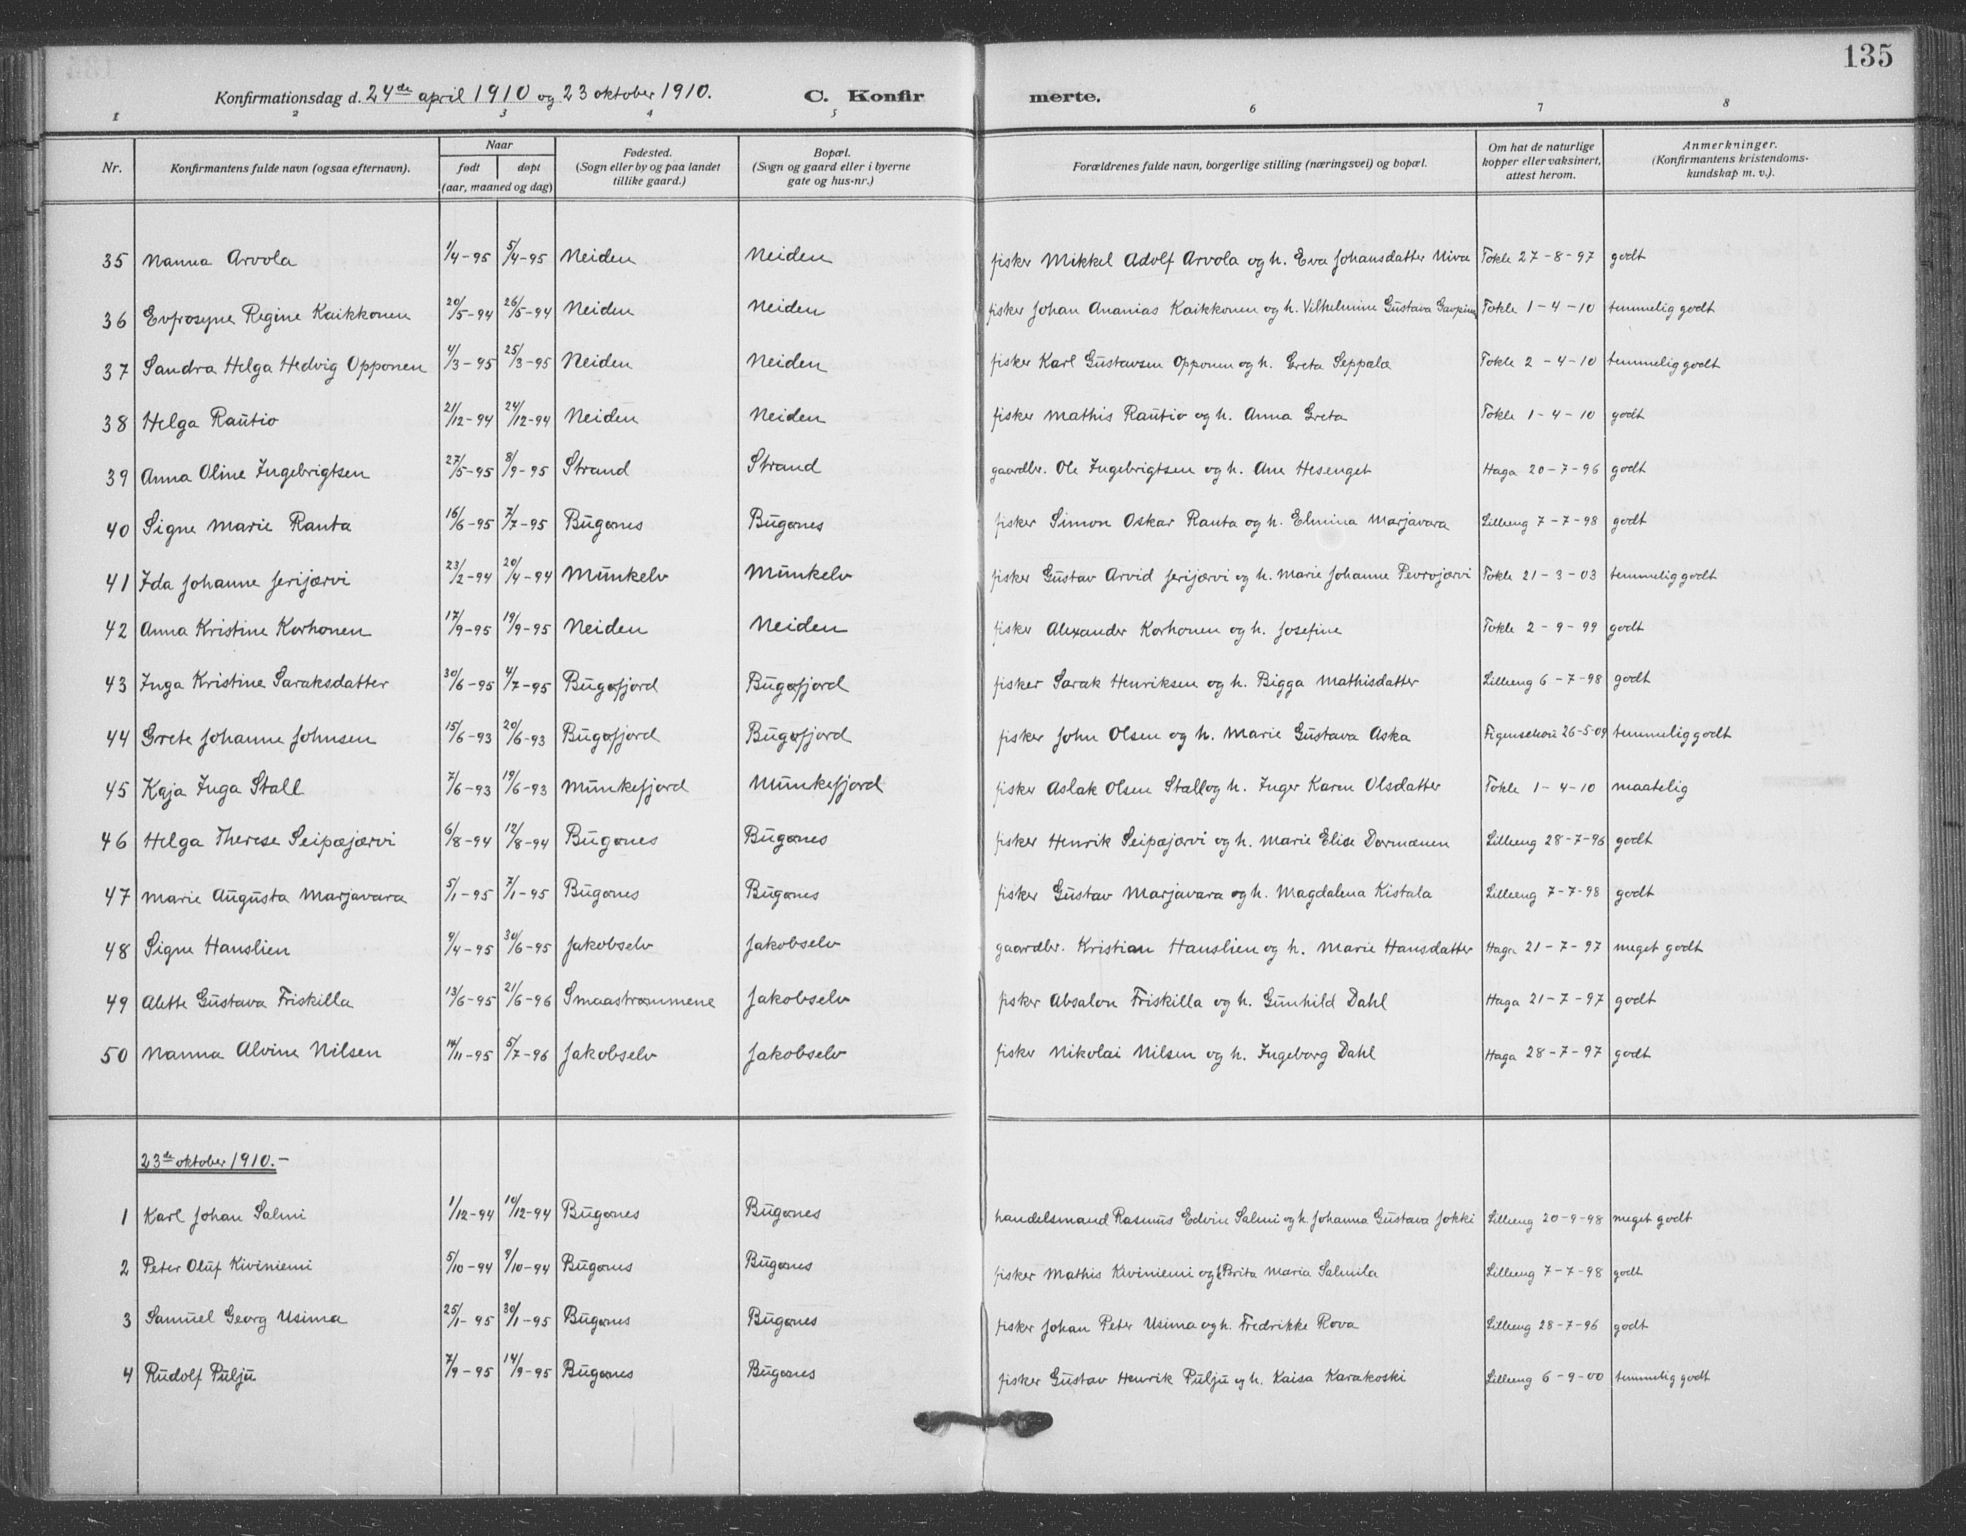 135
Konfirmationsdag d. 24de april 1910 og 23 oktober 1910. C. Konfirmerte.
1 2 3 4 5 6 7 8
Nr. Konfirmantens fulde navn (ogsaa efternavn). Naar født døpt (aar, maaned og dag) Fødested. (Sogn eller by og paa landet tillike gaard.) Bopæl. (Sogn og gaard eller i byerne gate og hus-nr.) Forældrenes fulde navn, borgerlige stilling (næringsvei) og bopæl. Om hat de naturlige kopper eller vaksinert, attest herom. Anmerkninger. (Konfirmantens kristendomskundskap m. v.).
35 Nanna Arvola 1/4-95 5/4-95 Neiden Neiden fisker Mikkel Adolf Arvola og h. Eva Johansdatter Niva Tokle 27-8-97 godt
36 Evfrosyne Regine Kaikkonen 20/5-94 26/5-94 Neiden Neiden fisker Johan Ananias Kaikkonen og h. Vilhelmine Gustava Tokle 1-4-10 temmelig godt
37 Sandra Helga Hedvig Opponen 4/3-95 25/3-95 Neiden Neiden fisker Karl Gustavsen Opponen og h. Greta Seppala Tokle 2-4-10 temmelig godt
38 Helga Rautio 21/12-94 24/12-94 Neiden Neiden fisker Mathis Rautio og h. Anna Greta Tokle 1-4-10 godt
39 Anna Oline Ingebrigtsen 27/5-95 8/9-95 Strand Strand gaardbr. Ole Ingebrigtsen og h. Ane Hesenget Haga 20-7-96 godt
40 Signe Marie Ranta 16/6-95 7/7-95 Bugønes Bugønes fisker Simon Oskar Ranta og h. Elmina Marjavara Lilleeng 7-7-98 godt
41 Ida Johanne Jerijærvi 23/2-94 20/4-94 Munkelv Munkelv fisker Gustav Arvid Jerijærvi og h. Marie Johanne Pevrojærvi Tokle 21-3-03 temmelig godt
42 Anna Kristine Korhonen 17/9-95 19/9-95 Neiden Neiden fisker Alexander Korhonen og h. Josefine Tokle 2-9-99 godt
43 Inga Kristine Saraksdatter 30/6-95 4/7-95 Bugøfjord Bugøfjord fisker Sarak Henriksen og h. Bigga Mathisdatter Lilleeng 6-7-98 godt
44 Grete Johanne Johnsen 15/6-93 20/6-93 Bugøfjord Bugøfjord fisker John Olsen og h. Marie Gustava Aska Figenschou 26-5-09 temmelig godt
45 Kaja Inga Stall 7/6-93 19/6-93 Munkefjord Munkefjord fisker Aslak Olsen Stall og h. Inger Karen Olsdatter Tokle 1-4-10 maatelig
46 Helga Therese Seipæjærvi 6/8-94 12/8-94 Bugønes Bugønes fisker Henrik Seipæjærvi og h. Marie Elise Dormænen Lilleeng 28-7-96 godt
47 Marie Augusta Marjavara 5/1-95 7/1-95 Bugønes Bugønes fisker Gustav Marjavara og h. Magdalena Kistala Lilleeng 7-7-98 godt
48 Signe Hanslien 9/4-95 30/6-95 Jakobselv Jakobselv gaardbr. Kristian Hanslien og h. Marie Hansdatter Haga 21-7-97 meget godt
49 Alette Gustava Friskilla 13/6-95 21/6-96 Smaastrømmene Jakobselv fisker Absalon Friskilla og h. Gunhild Dahl Haga 21-7-97 godt
50 Nanna Alvine Nilsen 14/11-95 5/7-96 Jakobselv Jakobselv fisker Nikolai Nilsen og h. Ingeborg Dahl Haga 28-7-97 godt
23de oktober 1910.-
1 Karl Johan Salmi 1/12-94 10/12-94 Bugønes Bugønes handelsmand Rasmus Edvin Salmi og h. Johanna Gustava Jokki Lilleeng 20-9-98 meget godt
2 Peter Oluf Kiviniemi 5/10-94 9/10-94 Bugønes Bugønes fisker Mathis Kiviniemi og h. Brita Maria Salmila Lilleeng 7-7-98 godt
3 Samuel Georg Usima 25/1-95 30/1-95 Bugønes Bugønes fisker Johan Peter Usima og h. Fredrikke Rova Lilleeng 28-7-96 godt
4 Rudolf Pulju 7/9-95 14/9-95 Bugønes Bugønes fisker Gustav Henrik Pulju og h. Kaisa Karakoski Lilleeng 6-9-00 temmelig godt